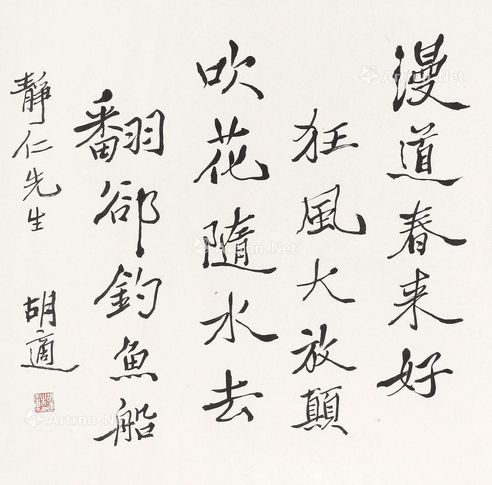 漫道春来好
狂風大放顛
吹花隨水去
翻卻釣魚船
靜仁先生
胡適
Artron.Net